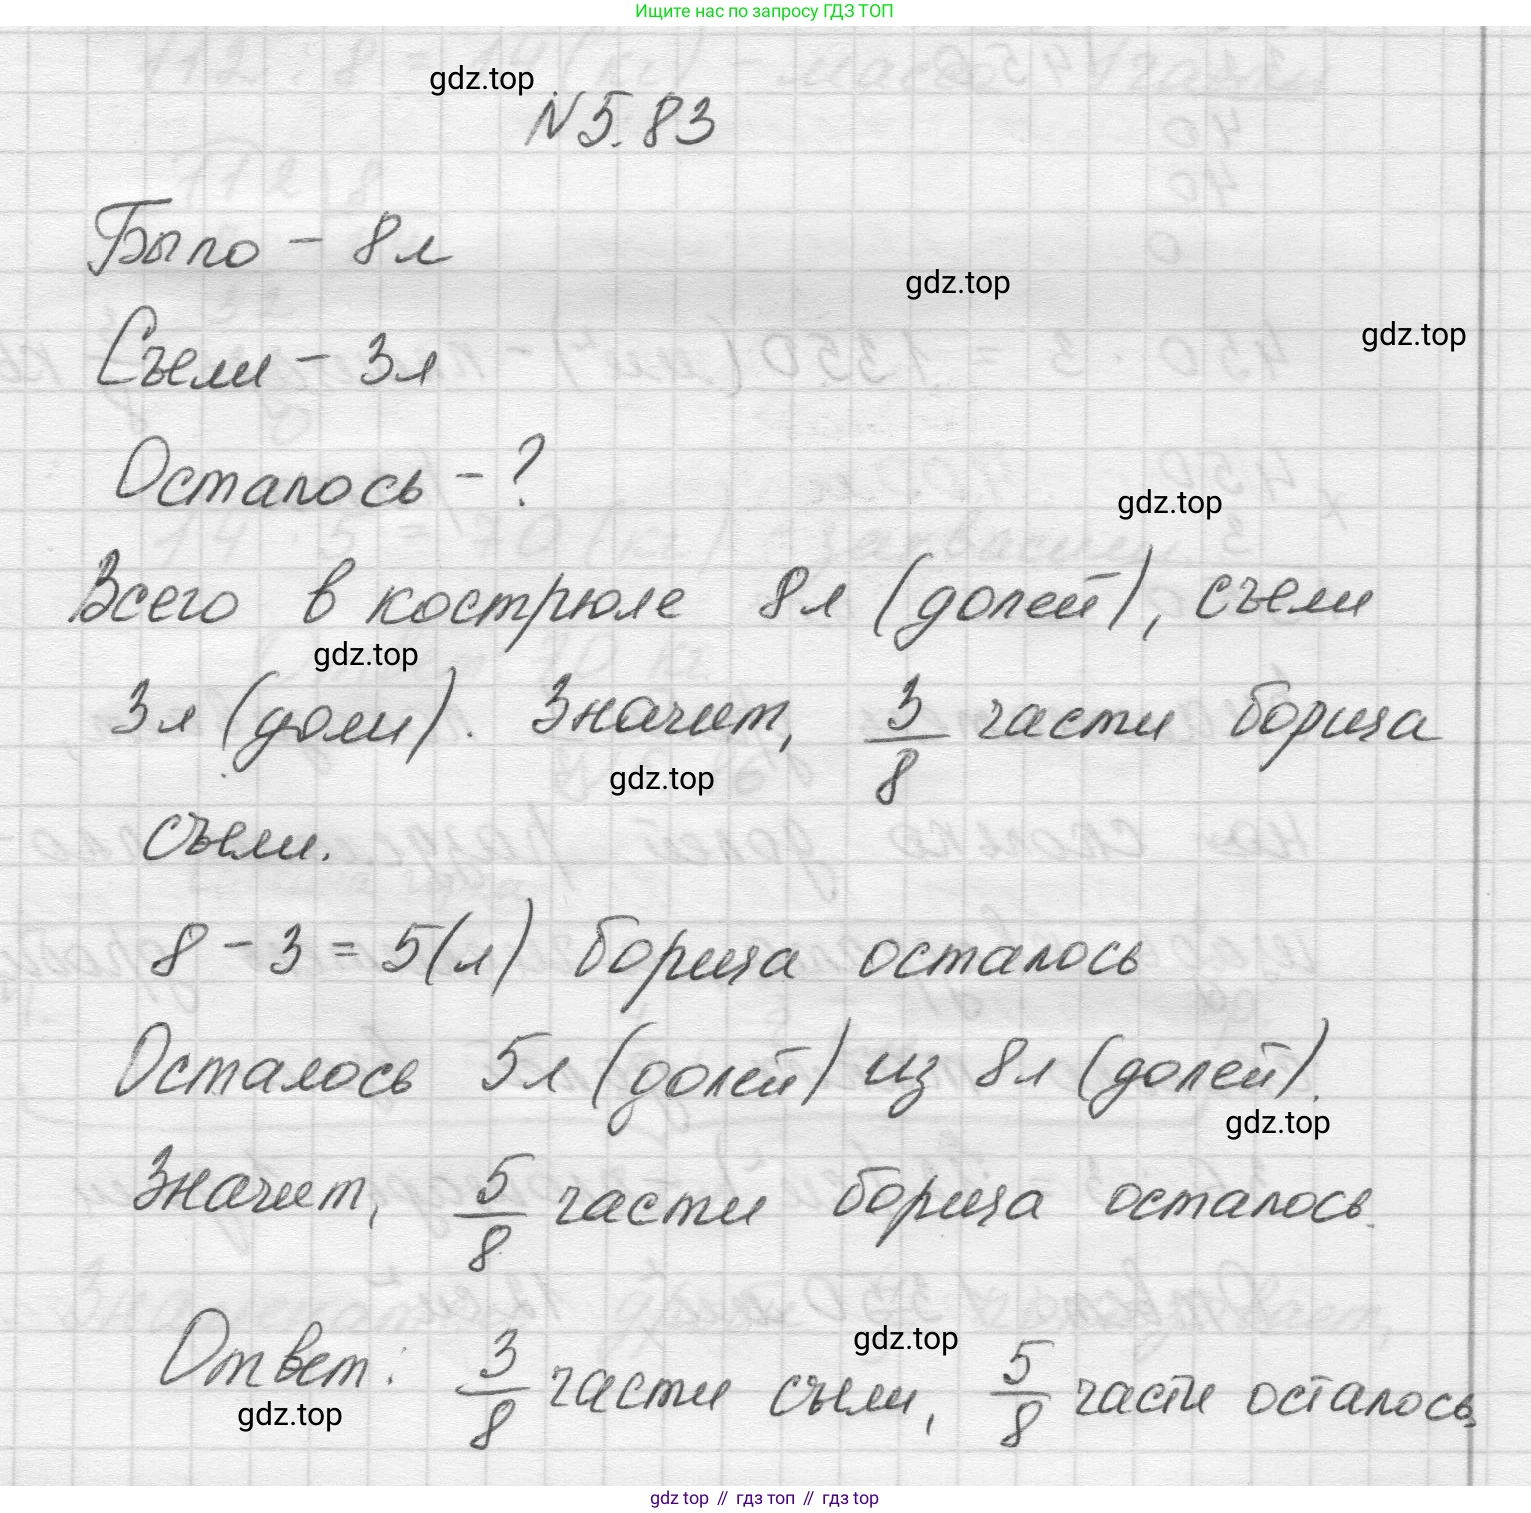 Ищите нас по запросу ГДЗ ТОП
gdz.top
N 5.83
Было – 8л
gdz.top
Съели – 3л
gdz.top
Осталось – ?
gdz.top
Всего в кострюле 8л (долей), съели
gdz.top
3л (доли). Значит, 3/8 части борща
gdz.top
съели.
8 – 3 = 5(л) борща осталось
Осталось 5л (долей) из 8л (долей).
gdz.top
Значит, 5/8 части борща осталось.
gdz.top
Ответ: 3/8 части съели, 5/8 части осталось.
gdz.top
gdz top // гдз топ // гдз top